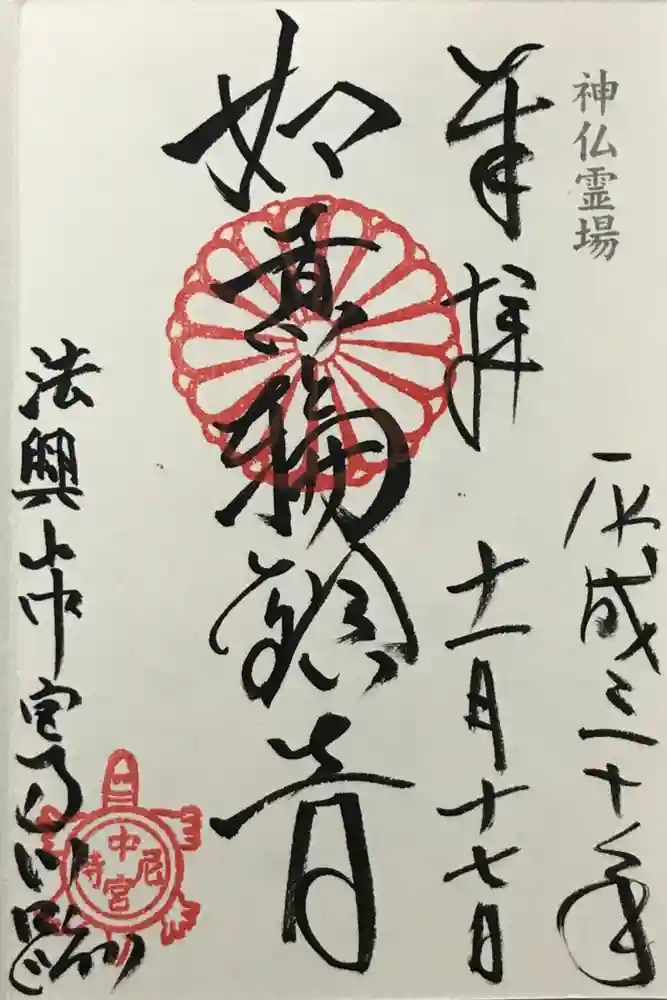 神仏霊場
平成三十年
奉拝
十一月十七日
如意輪観音
法興山中宮寺門跡
中宮尼寺